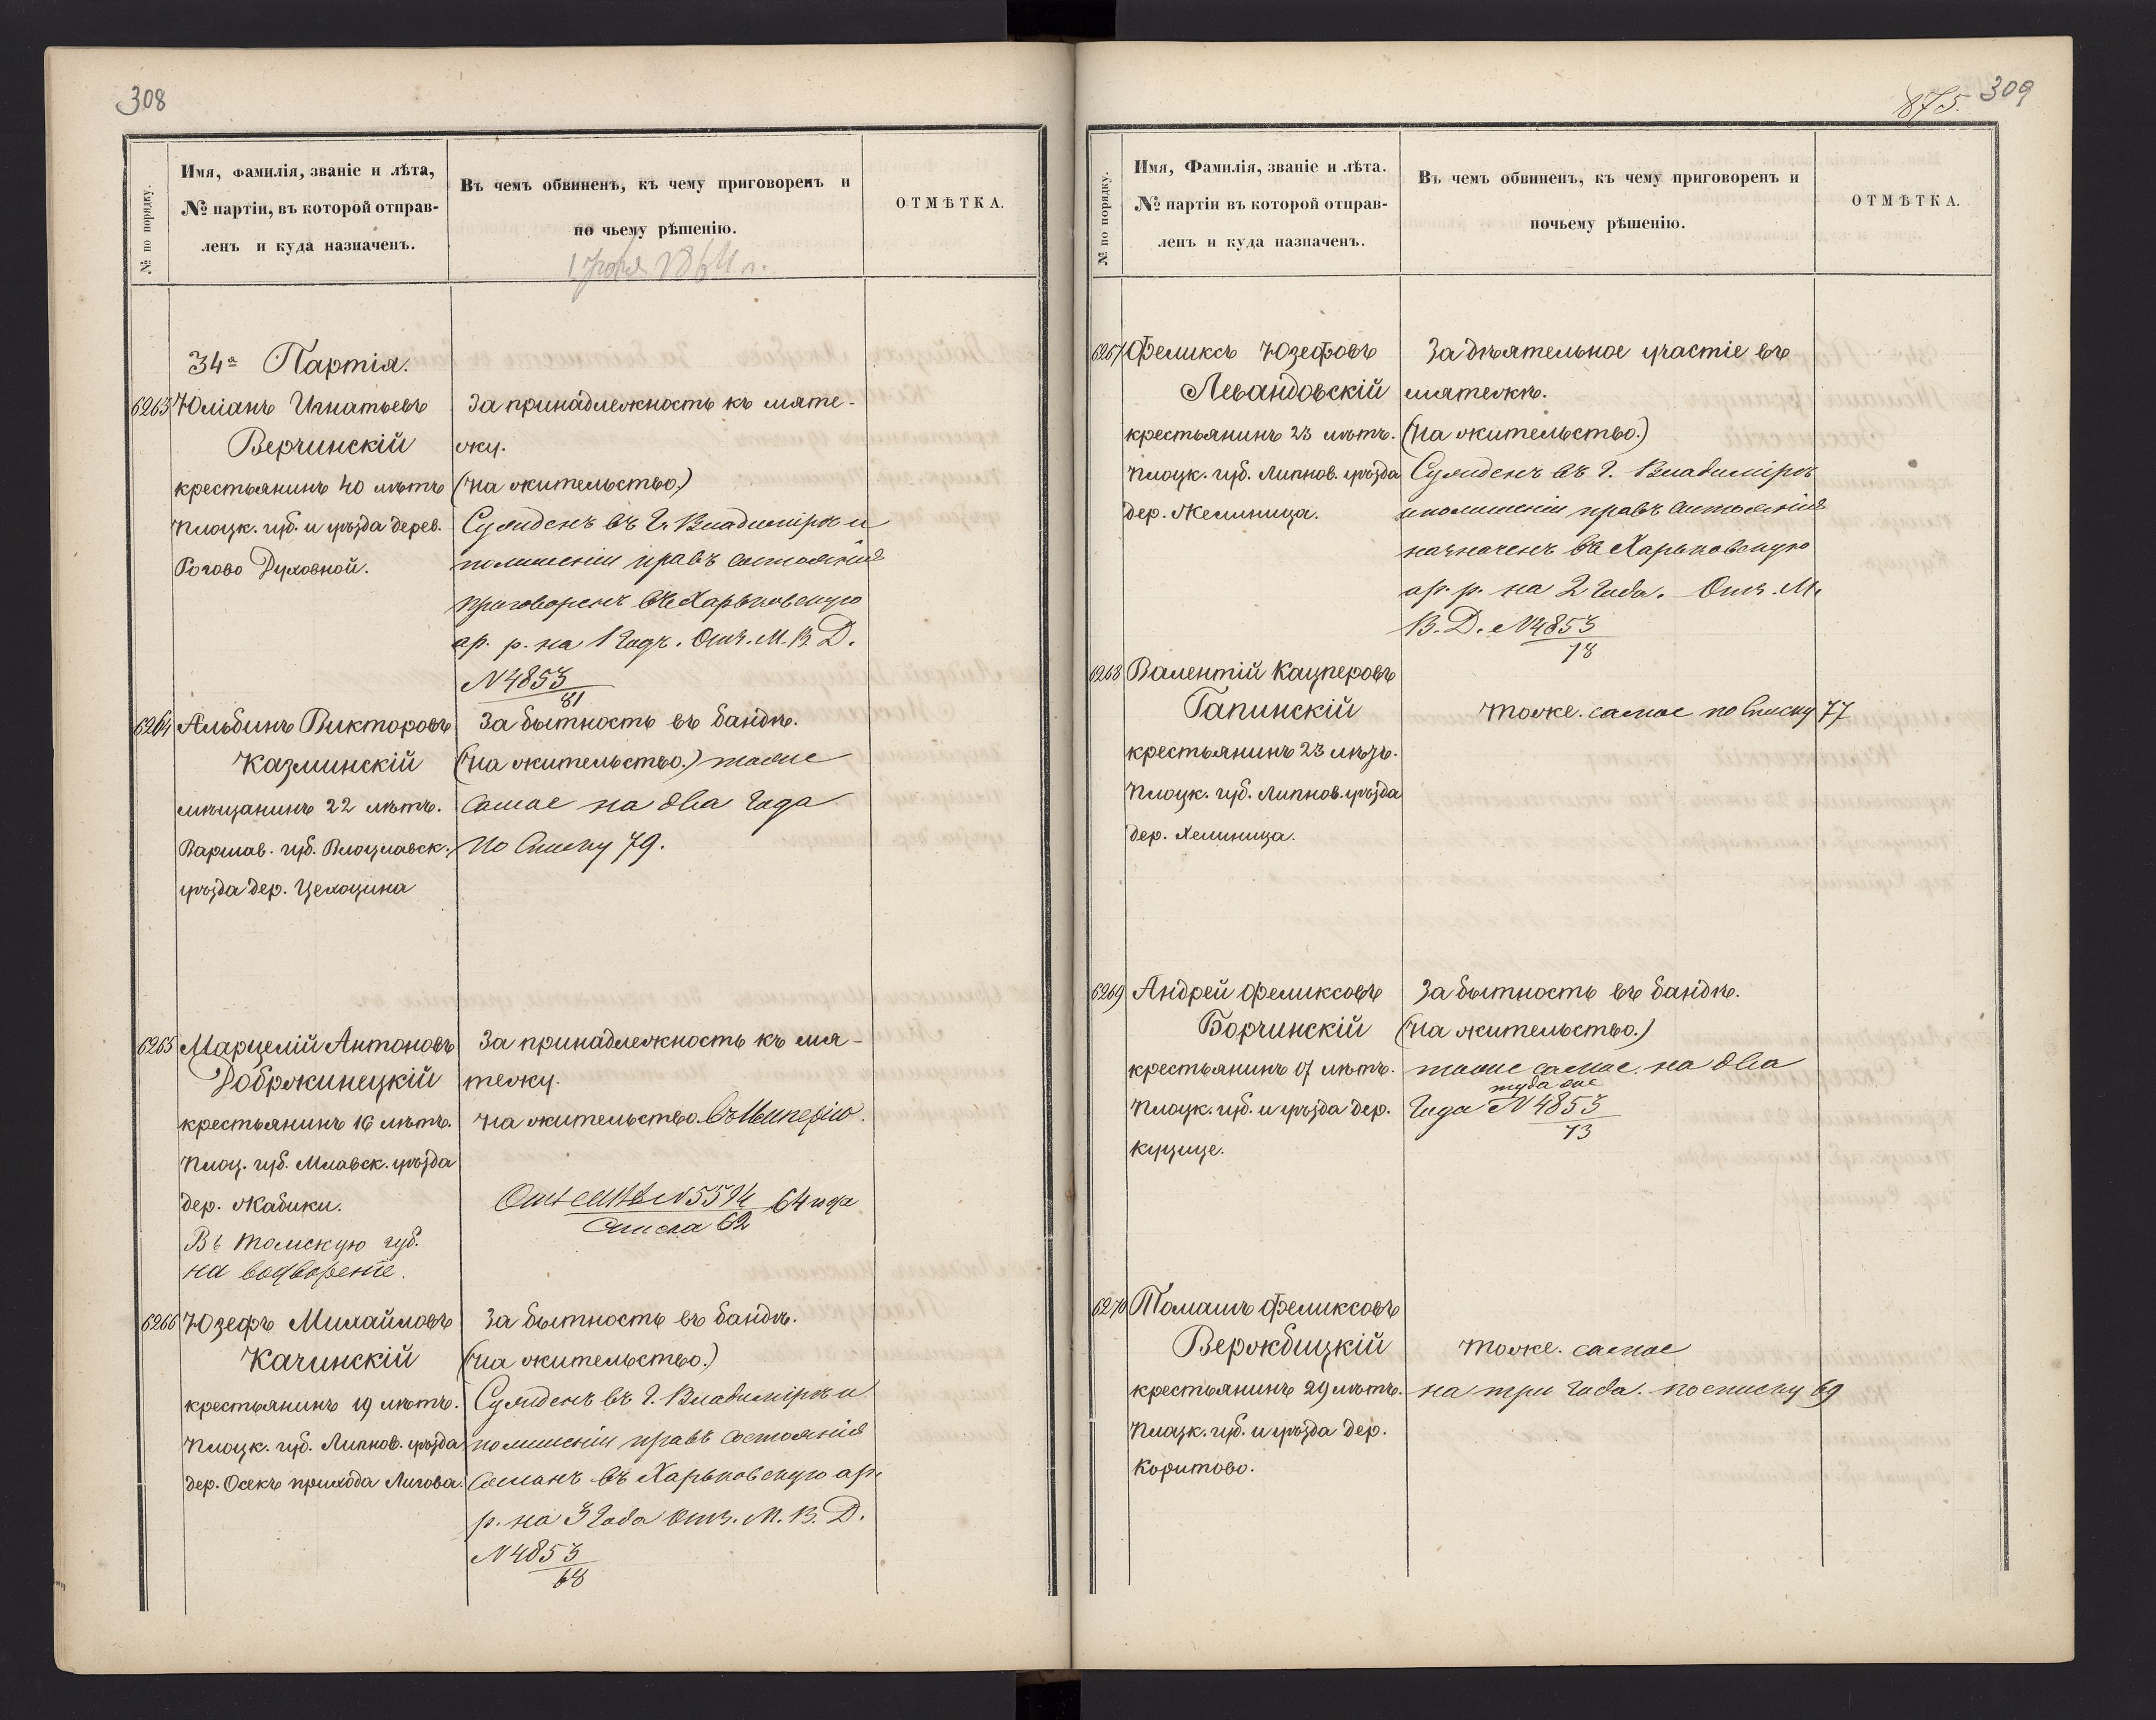 308
№ по порядку.
Имя, фамилія, званіе и лѣта,
№ партіи, въ которой отправ-
ленъ и куда назначенъ.
Въ чемъ обвиненъ, къ чему приговоренъ и
по чьему рѣшенію.
1864 г.
ОТМѢТКА.
34я Партія.
6263 Юліанъ Игнатьевъ
Верчинскій
крестьянинъ 40 лѣтъ
Плоцк. губ. и уѣзда дерев.
Рогово Духовной.
За принадлежность къ мяте-
жу.
(На жительство.)
Сужденъ въ г. Владимірѣ и
полишеніи правъ состоянія
приговоренъ въ Харьковскую
ар. р. на 1 годъ. Отн. М. В. Д.
N 4853
81
6264 Альбинъ Викторовъ
Казминскій
мѣщанинъ 22 лѣтъ.
Варшав. губ. Влоцлавск.
уѣзда дер. Цехоцина
За бытность въ бандѣ.
(На жительство.) тоже
самое на два года
По списку 79.
6265 Марцелій Антоновъ
Добржинецкій
крестьянинъ 16 лѣтъ.
Плоц. губ. Млавск. уѣзда
дер. Жабики.
Въ Томскую губ.
на водвореніе.
За принадлежность къ мя-
тежу.
На жительство въ Имперію.
N 5514 64 года
Списка 62
6266 Юзефъ Михайловъ
Качинскій
крестьянинъ 19 лѣтъ.
Плоцк. губ. Липнов. уѣзда
дер. Осекъ прихода Лигова.
За бытность въ бандѣ.
(На жительство.)
Сужденъ въ г. Владимірѣ и
полишеніи правъ состоянія
сосланъ въ Харьковскую ар.
р. на 3 года Отн. М. В. Д.
N 4853
68
309
875.
№ по порядку.
Имя, Фамилія, званіе и лѣта.
№ партіи въ которой отправ-
ленъ и куда назначенъ.
Въ чемъ обвиненъ, къ чему приговоренъ и
почьему рѣшенію.
ОТМѢТКА.
6267 Феликсъ Юзефовъ
Левандовскій
крестьянинъ 23 лѣтъ.
Плоцк. губ. Липнов. уѣзда
дер. Жемлница.
За дѣятельное участіе въ
мятежѣ.
(На жительство.)
Сужденъ въ г. Владимірѣ
иполишеніи правъ состоянія
назначенъ въ Харьковскую
ар. р. на 2 года. Отн. М.
В. Д. N 4853
78
6268 Валентій Кацперовъ
Гапинскій
крестьянинъ 23 лѣтъ.
Плоцк. губ. Липнов. уѣзда
дер. Хелмница.
тоже самое по списку 77
6269 Андрей Феликсовъ
Борчинскій
крестьянинъ 07 лѣтъ.
Плоцк. губ. и уѣзда дер.
Куцице.
За бытность въ бандѣ.
(На жительство.)
тоже самое на два
туда же
года N 4853
73
6270 Томашъ Феликсовъ
Вержбицкій
крестьянинъ 29 лѣтъ.
Плоцк. губ. и уѣзда дер.
Коритово.
тоже самое
на три года. посписку 69